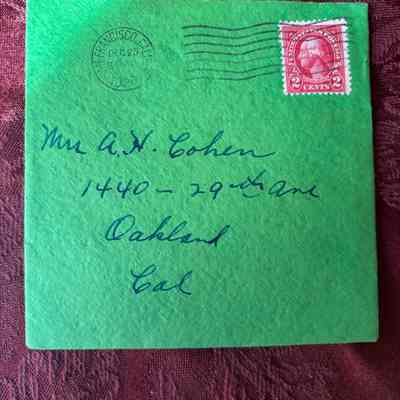 FRANCISCO, CAL
2 CENTS 2
Mrs A. H. Cohen
1440 - 29th Ave
Oakland
Cal